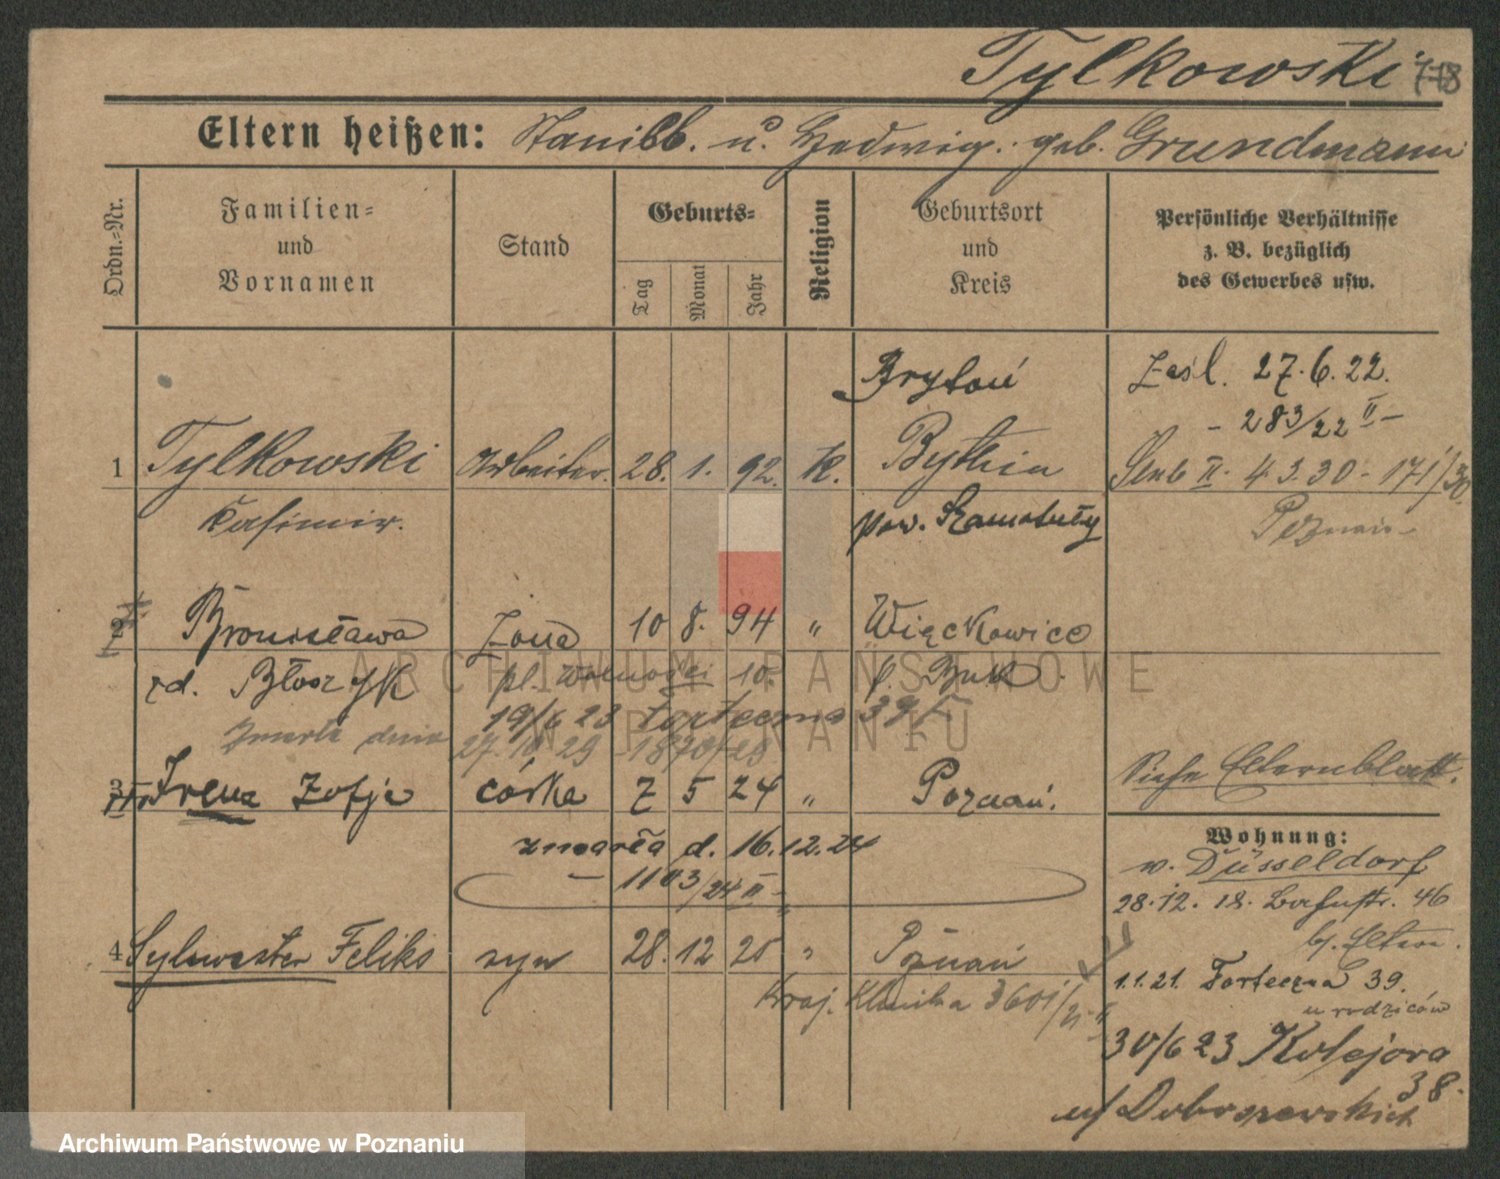 Tylkowski 718
Eltern heißen: Stanisl. u. Hedwig. geb. Grundmann
Ordn.-Nr.
Familien-
und
Vornamen
Stand
Geburts-
Tag
Monat
Jahr
Religion
Geburtsort
und
Kreis
Persönliche Verhältnisse
z. B. bezüglich
des Gewerbes usw.
Bytoń
Zaśl. 27.6.22.
- 283/22 II -
1 Tylkowski Arbeiter. 28. 1. 92. k. Bythin
II. 4 3. 30 - 171/30
Kasimir.
pow. Szamotuły
Poznań
2 Bronisława żona 10 8. 94 " Więckowice
rd. Błoszyk
pl. Wolności 10.
p. Buk
19/6 23 Forteczna 39
zmarła dnia 27. 10. 29 1870/28
3 Irena Zofja córka 7 5 24 " Poznań.
Siehe Elternblatt.
zmarła d. 16.12.24
- 1103/24 II -
4 Sylwester Feliks syn 28. 12 25 " Poznań
Kraj. Klinika 3601/25
Wohnung:
v. Düsseldorf
28.12. 18. Bahnstr. 46
b/. Eltern.
1.1.21. Forteczna 39.
u rodziców
30/6 23 Kolejowa
38.
Archiwum Państwowe w Poznaniu
ARCHIWUM PAŃSTWOWE
W POZNANIU